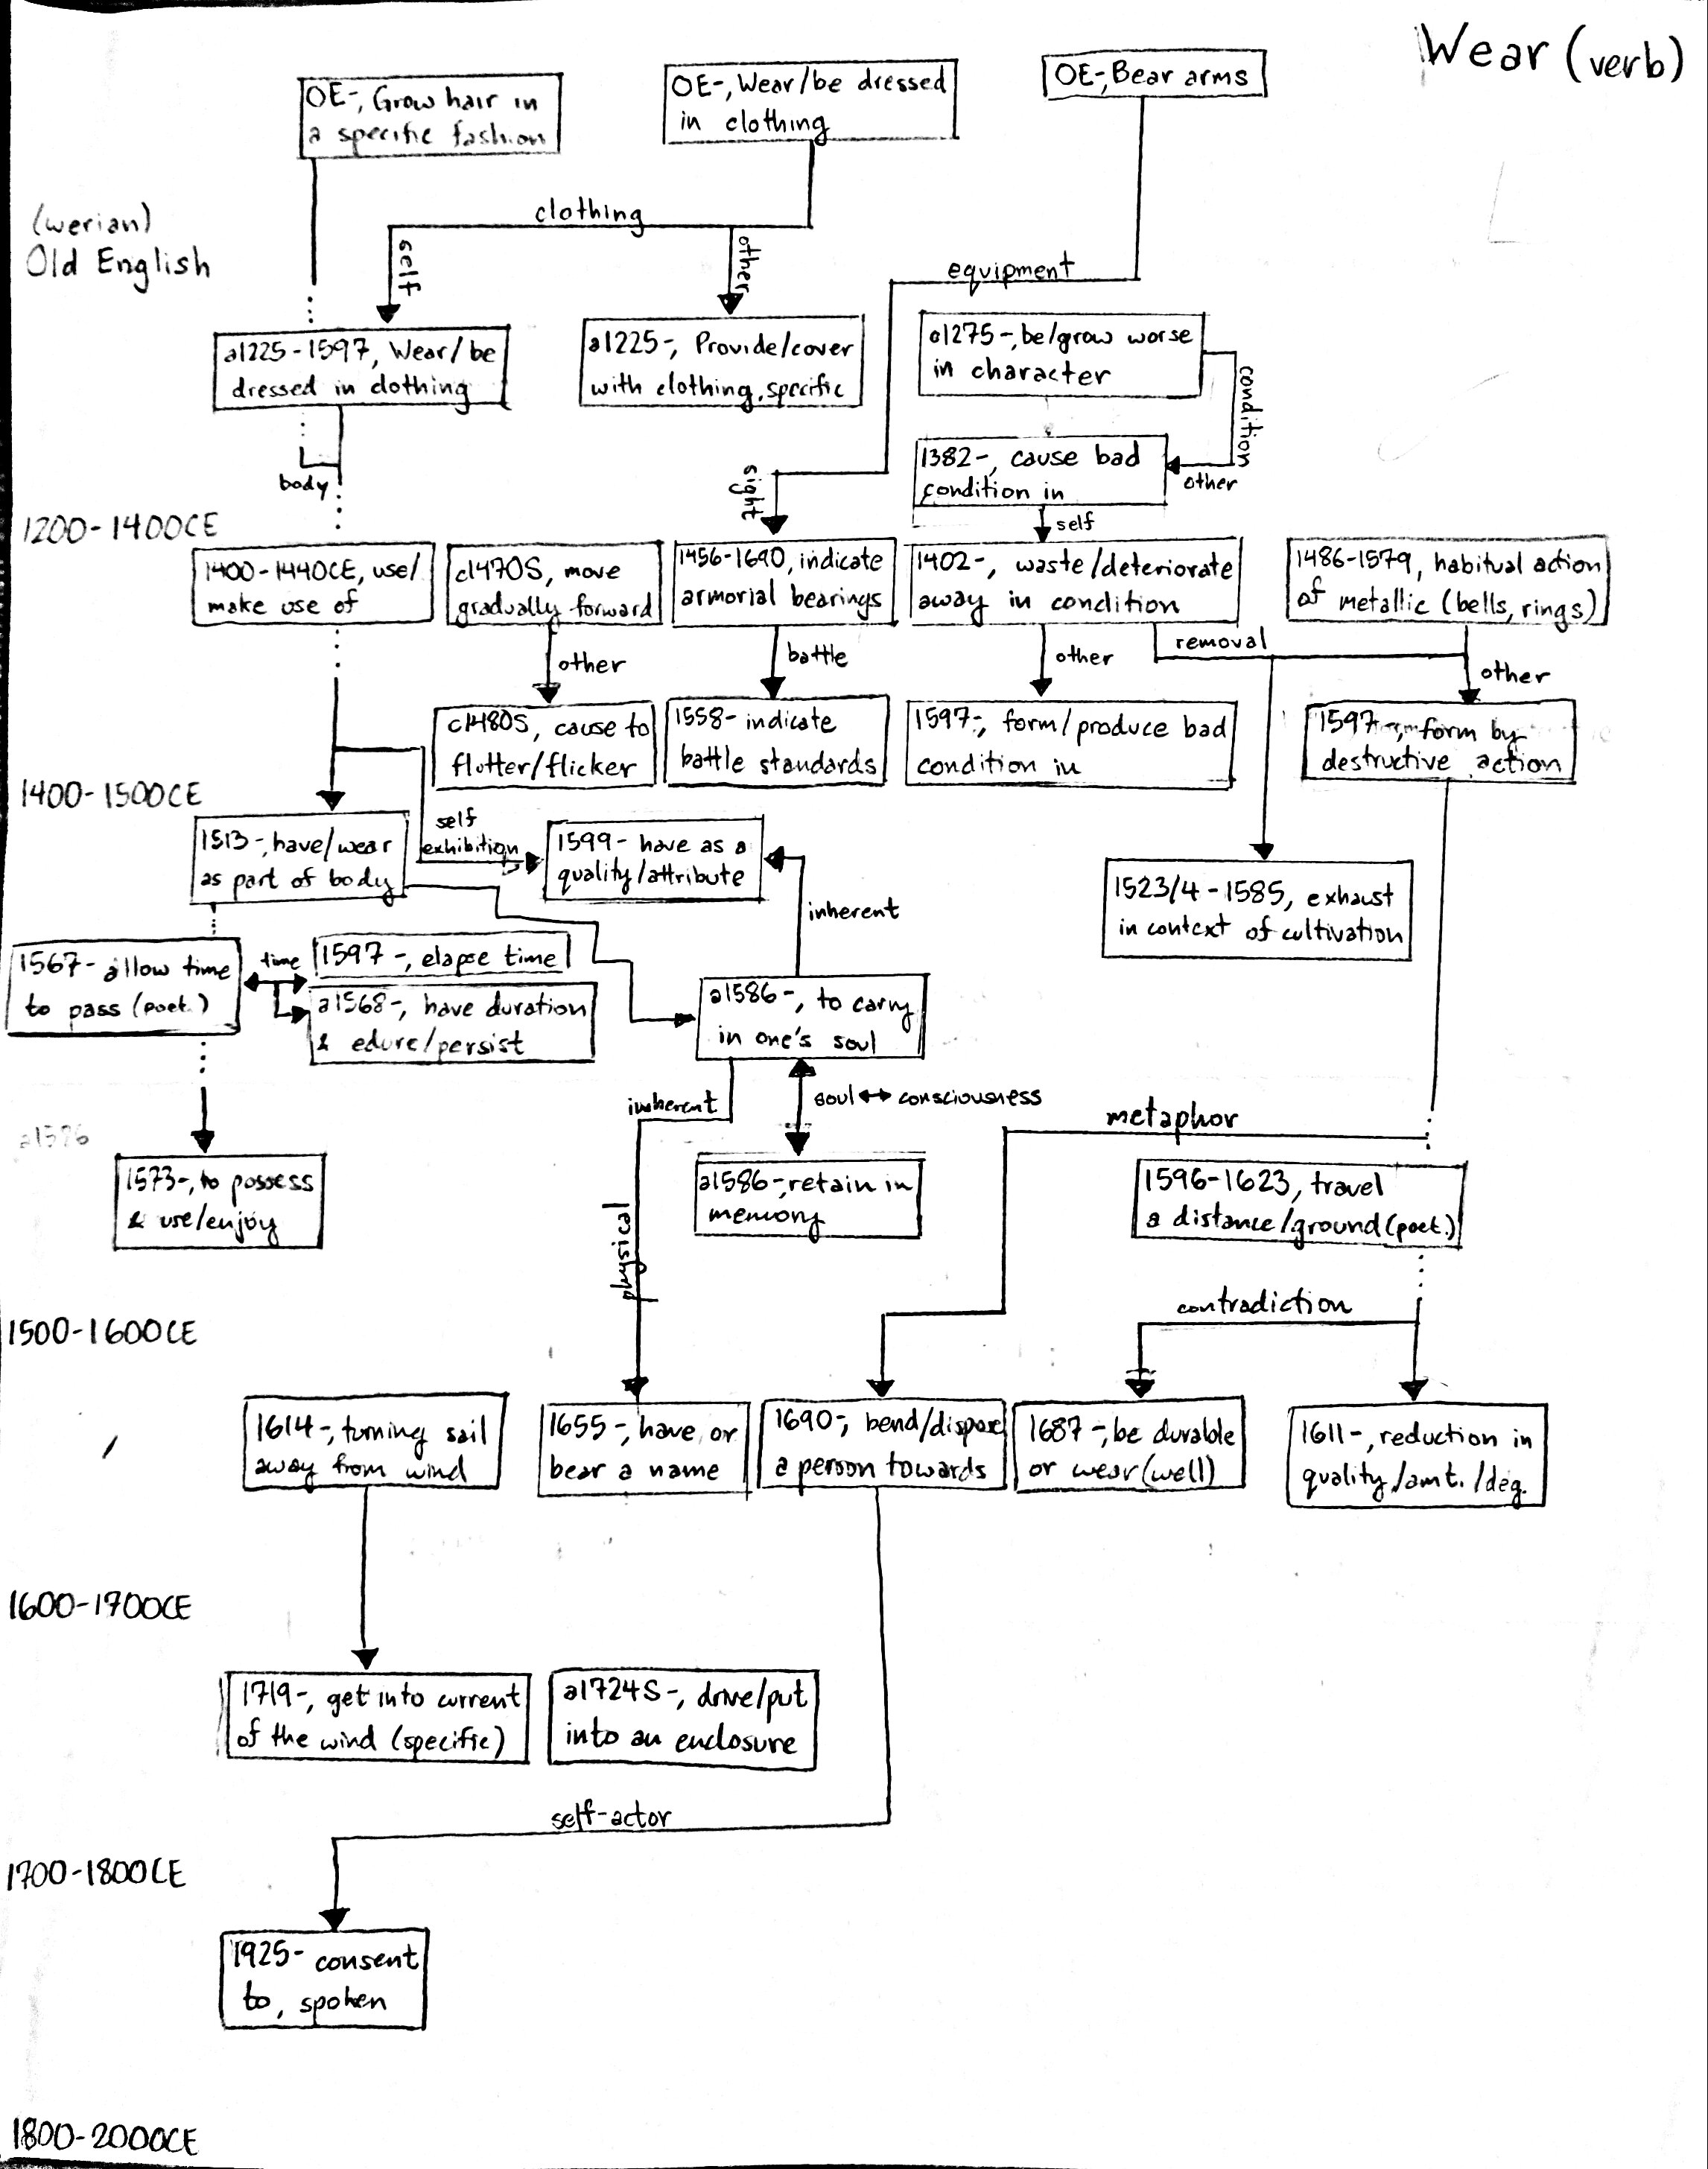 Wear (verb)
OE-, Grow hair in
a specific fashion
OE-, Wear/be dressed
in clothing
OE-, Bear arms
(werian)
Old English
clothing
self
other
equipment
a1225-1597, Wear/be
dressed in clothing
a1225-, Provide/cover
with clothing, specific
a1275-, be/grow worse
in character
condition
body
sight
1382-, cause bad
condition in
other
self
1200-1400CE
1400-1440CE, use/
make use of
c1470S, move
gradually forward
1456-1690, indicate
armorial bearings
1402-, waste/deteriorate
away in condition
1486-1579, habitual action
of metallic (bells, rings)
other
battle
other
removal
other
c1480S, cause to
flutter/flicker
1558- indicate
battle standards
1597-, form/produce bad
condition in
1597-, form by
destructive action
1400-1500CE
1513-, have/wear
as part of body
self
exhibition
1599- have as a
quality/attribute
inherent
1523/4-1585, exhaust
in context of cultivation
1567- allow time
to pass (poet.)
time
1597-, elapse time
a1568-, have duration
& edure/persist
a1586-, to carry
in one's soul
inherent
soul ↔ consciousness
metaphor
a1576
1573-, to possess
& use/enjoy
physical
a1586-, retain in
memory
1596-1623, travel
a distance/ground (poet.)
contradiction
1500-1600CE
1614-, turning sail
away from wind
1655-, have or
bear a name
1690-, bend/dispose
a person towards
1687-, be durable
or wear (well)
1611-, reduction in
quality/amt./deg.
1600-1700CE
1719-, get into current
of the wind (specific)
a1724S-, drive/put
into an enclosure
self-actor
1700-1800CE
1925- consent
to, spoken
1800-2000CE